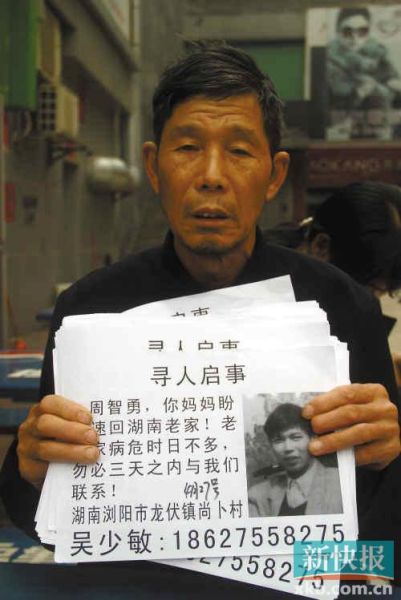 寻人启事
寻人启事
寻人启事
周智勇，你妈妈盼
速回湖南老家！老
家病危时日不多，
勿必三天之内与我们
联系！
湖南浏阳市龙伏镇尚卜村
吴少敏：18627558275
新快报
xkb.com.cn